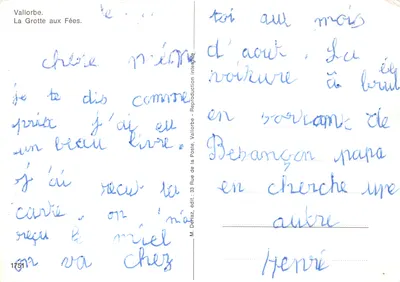 Vallorbe.
La Grotte aux Fées.
chère
je te dis comme
j'ai eu
un beau livre.
j'ai reçu ta
carte, on n'a
reçu le miel
on va chez
1791
M. Dériaz, édit. 33 Rue de la Poste, Vallorbe - Reproduction interdite
toi au mois
d'aout. La
voiture à brul
é
en sortant de
Besançon papa
en cherche une
autre
Henré